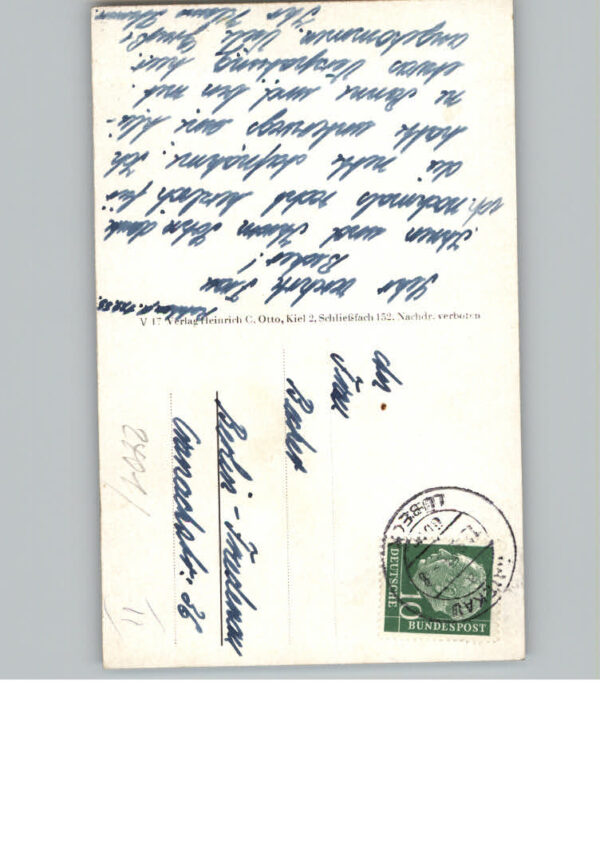 Sehr verehrte Frau
Becker!
Ihnen und Ihrem Sohn danke
ich nochmals recht herzlich für
die nette Aufnahme. Ich
hatte unterwegs eine
und bin mit
etwas Verspätung hier
angekommen. Viele Grüße
Ihr Klaus
V 17 Verlag Heinrich C. Otto, Kiel 2, Schließfach 152. Nachdr. verboten
An
Frau
Becker
Berlin - Friedenau
Cranachstr. 36
2401/
II
LÜBECK
DEUTSCHE
10
BUNDESPOST